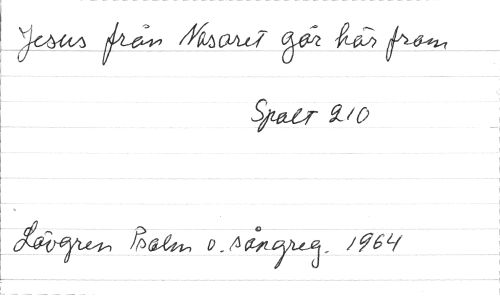 Jesus från Nasaret går här fram
Spalt 210
Lövgren Psalm o. sångreg. 1964